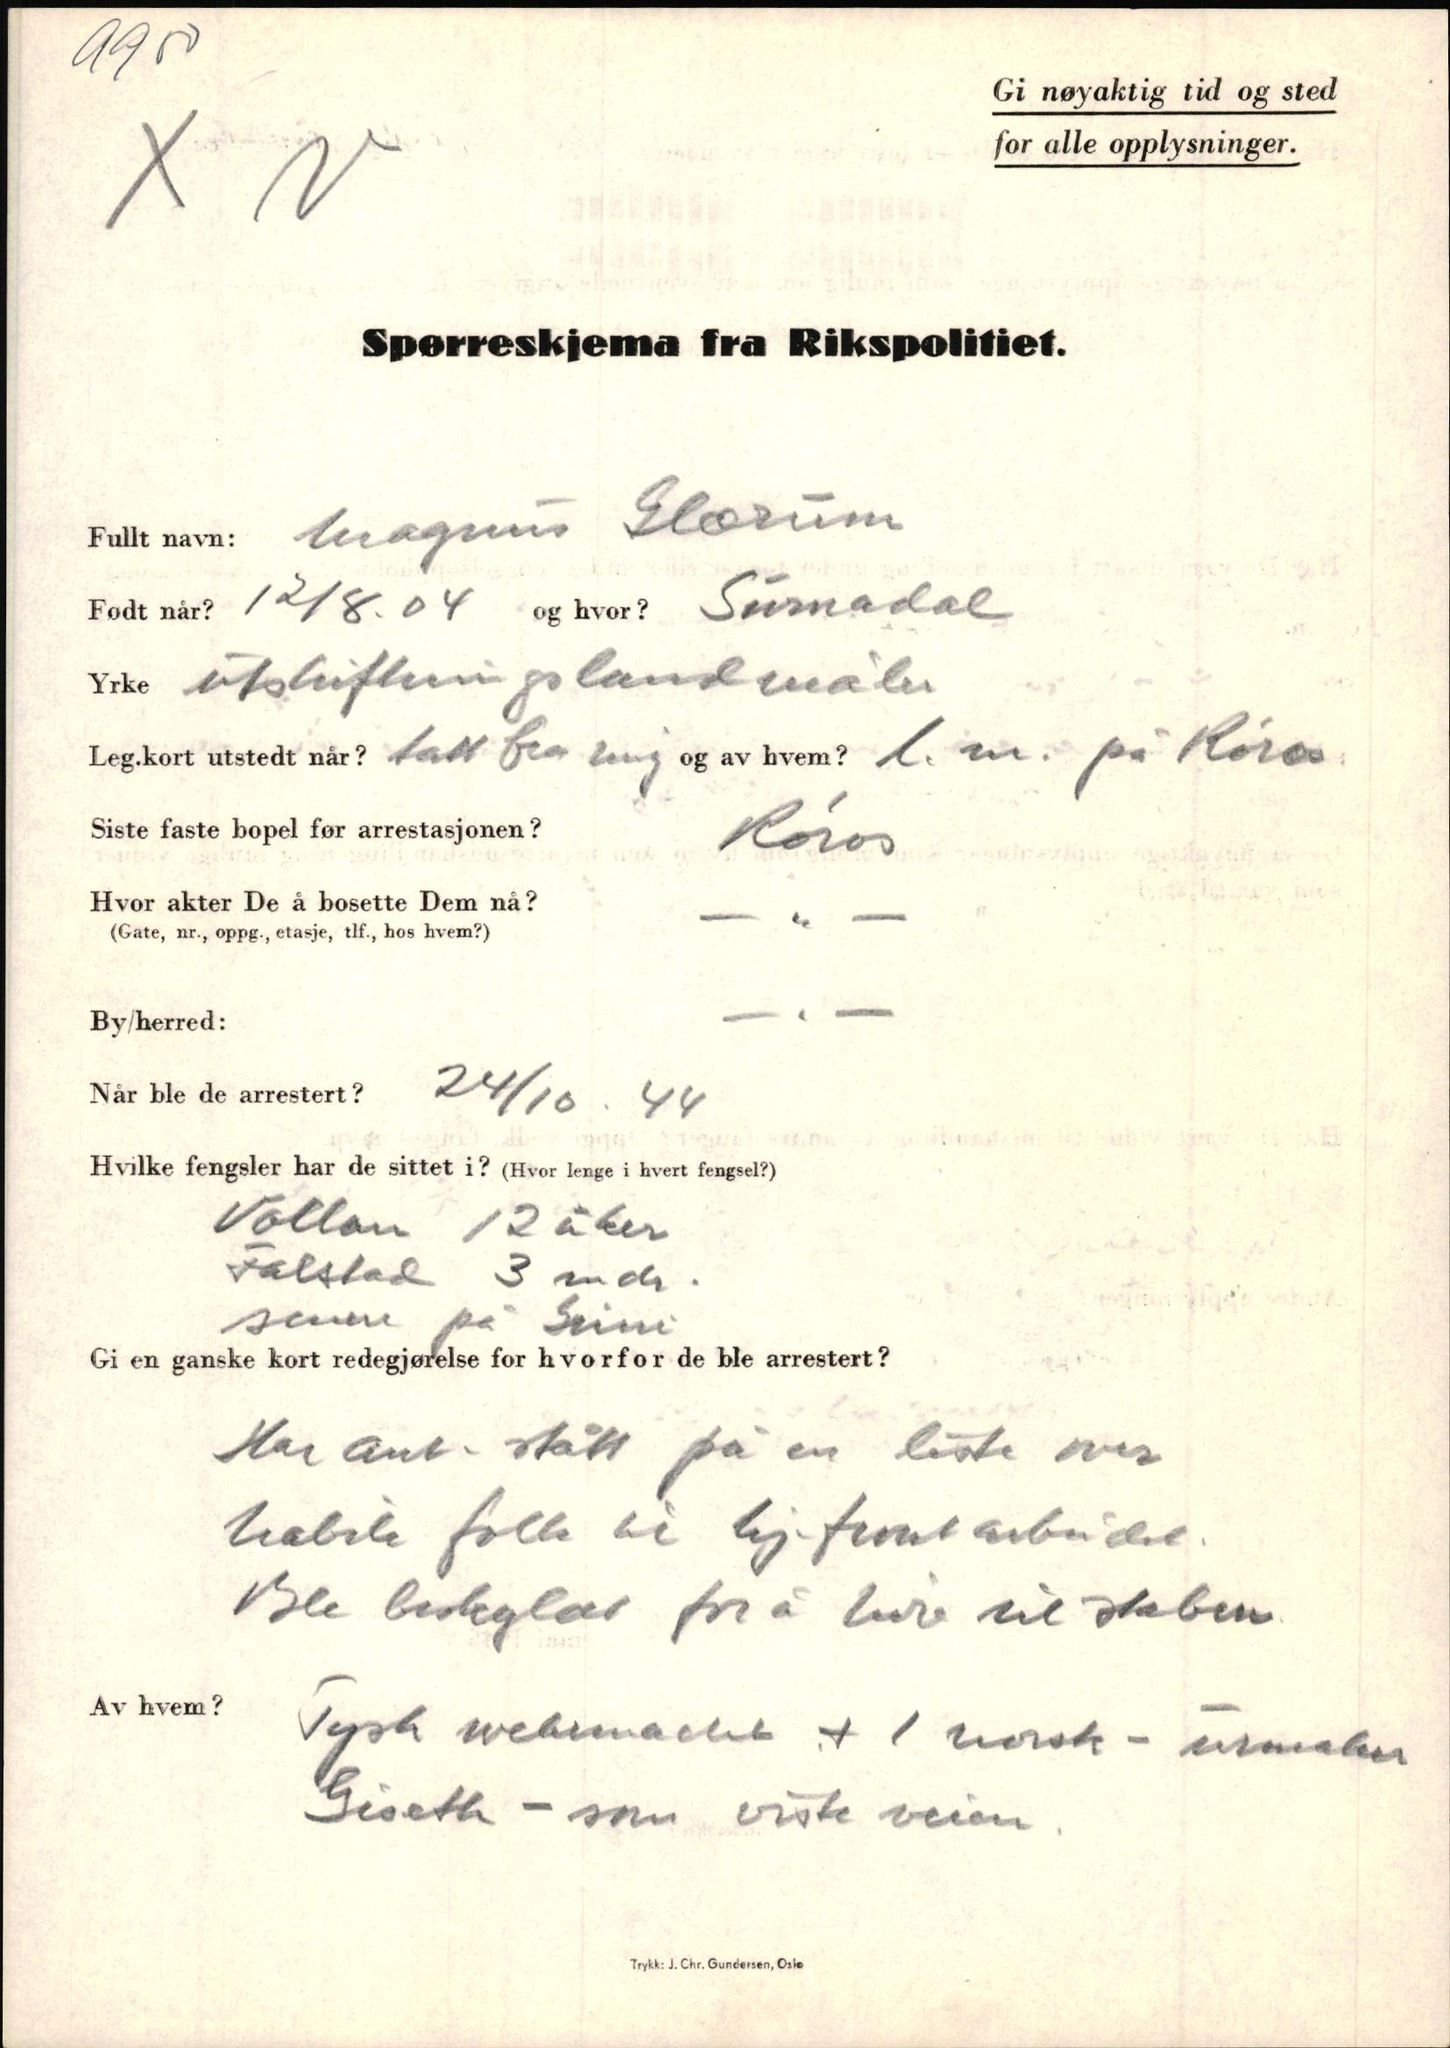 9950
X V
Gi nøyaktig tid og sted
for alle opplysninger.
Spørreskjema fra Rikspolitiet.
Fullt navn: Magnus Glærum
Født når? 12/8.04 og hvor? Surnadal
Yrke utskiftningslandmåler
Leg.kort utstedt når? tatt fra mig og av hvem? l. m. på Røros.
Siste faste bopel før arrestasjonen? Røros
Hvor akter De å bosette Dem nå? — " —
(Gate, nr., oppg., etasje, tlf., hos hvem?)
By/herred: — " —
Når ble de arrestert? 24/10. 44
Hvilke fengsler har de sittet i? (Hvor lenge i hvert fengsel?)
Vollan 12 uker
Falstad 3 mdr.
senere på Grini
Gi en ganske kort redegjørelse for hvorfor de ble arrestert?
Har ant. stått på en liste over
habile folk til hj.frontarbeidet.
Ble beskyldt for å høre til staben.
Av hvem? Tysk wehrmacht + 1 norsk - urmaker
Giseth - som viste veien.
Trykk: J. Chr. Gundersen, Oslo